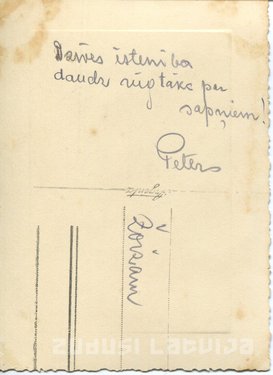 Dzīves īstenība
daudz rūgtāka par
sapņiem!
Peters
ZUDUSI LATVIJA